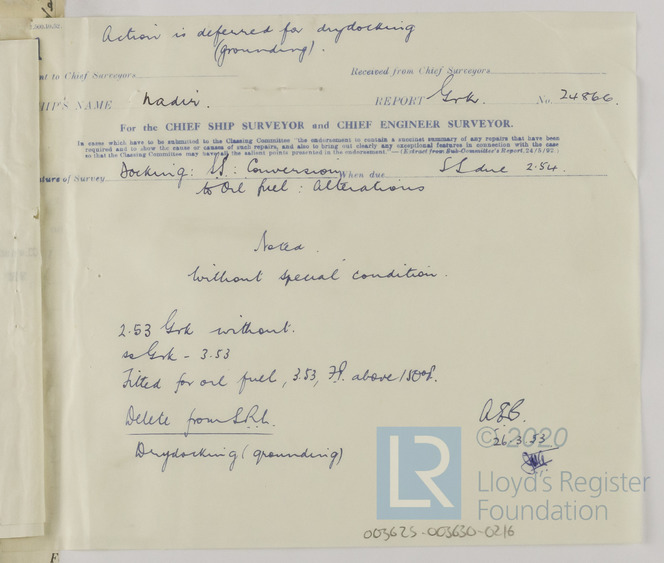 Action is deferred for drydocking
(grounding).
nt to Chief Surveyors
Received from Chief Surveyors
HIP'S NAME Nadir. REPORT Grk. No. 24866.
For the CHIEF SHIP SURVEYOR and CHIEF ENGINEER SURVEYOR.
In cases which have to be submitted to the Classing Committee "the endorsement to contain a succinct summary of any repairs that have been
required and to show the cause or causes of such repairs, and also to bring out clearly any exceptional features in connection with the case
so that the Classing Committee may have all the salient points presented in the endorsement."—(Extract from Sub-Committee's Report, 24/5/92.)
ature of Survey Docking: SS: Conversion When due SS due 2.54.
to Oil fuel: Alterations
Noted.
Without special condition.
2.53 Grk without.
ss Grk - 3.53
Fitted for oil fuel, 3.53, F.P. above 150°F.
Delete from S.R.L.
Drydocking (grounding)
26.3.53
© 2020
LR
Lloyd's Register
Foundation
003625-003630-0216